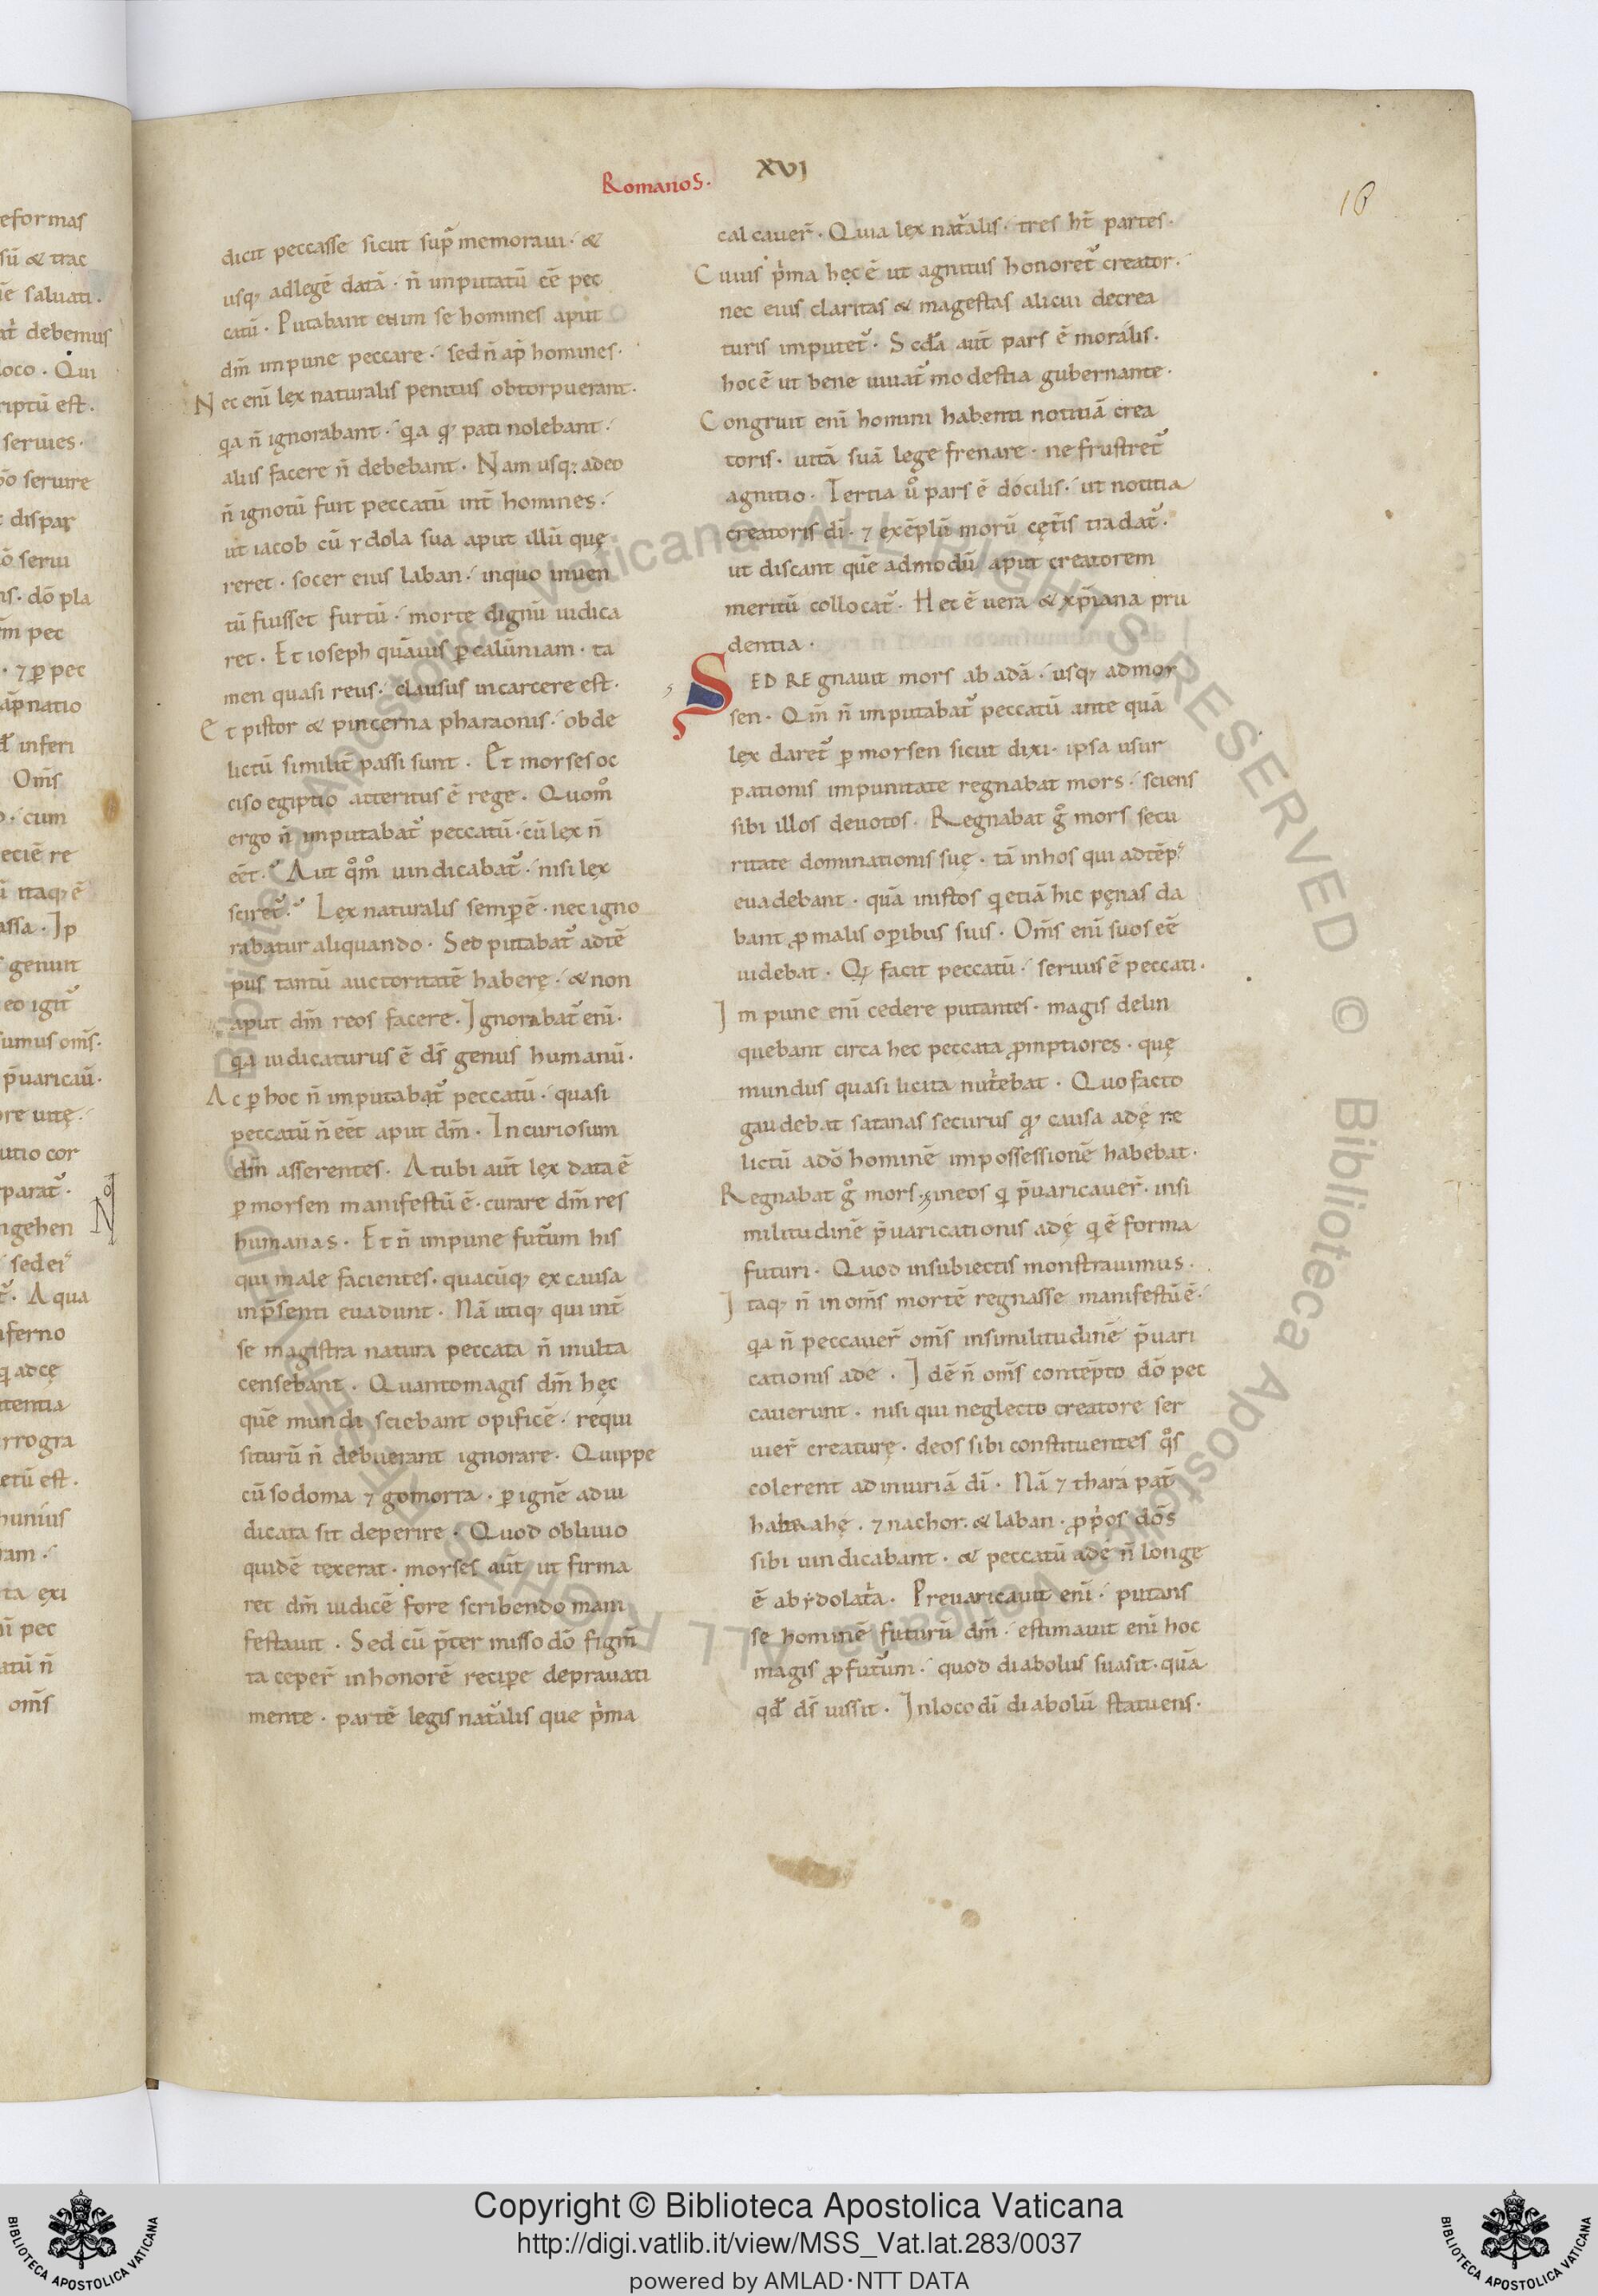 Romanos.
XVI
16
dicit peccasse sicut sup̄ memoraui · &
usq; adlegē datā · n̄ imputatū eē pec
catū · Putabant enim se homines aput
dm̄ impune peccare · sed n̄ ap̄ homines ·
Nec enī lex naturalis penitus obtorpuerant ·
qa n̄ ignorabant · qa q; pati nolebant ·
aliis facere n̄ debebant · Nam usq; adeo
n̄ ignotū fuit peccatū int̄ homines ·
ut iacob cū ydola sua aput illū quę
reret · socer eius laban · inquo inuen
tū fiusset furtū · morte dignū iudica
ret · Et ioseph quāuis p̱ calūniam · ta
men quasi reus · clausus incarcere est ·
Et pistor & pincerna pharaonis · obde
lictū similit̄ passi sunt · Et moyses oc
ciso egiptio atteritus ē rege · Quom̊
ergo n̄ imputabat᷒ peccatū · cū lex n̄
eēt · Aut qm̊̊ uindicabat᷒ · nisi lex
sciret᷒ · Lex naturalis semp̱ ē · nec igno
rabatur aliquando · Sed putabat᷒ adtē
pus tantū auctoritatē haberę · & non
aput dm̄ reos facere · Ignorabat᷒ enī ·
qa iudicaturus ē ds̄ genus humanū ·
Ac p̱ hoc n̄ imputabat᷒ peccatū · quasi
peccatū n̄ eēt aput dm̄ · Incuriosum
dm̄ asserentes · Atubi aut̄ lex data ē
p̱ moysen manifestū ē · curare dm̄ res
humanas · Et n̄ impune fut᷒um his
qui male facientes · quacūq; ex causa
inp̄senti euadunt · Nā utiq; qui int̄
se magistra natura peccata n̄ inulta
censebant · Quantomagis dm̄ hęc
quē mundi sciebant opificē · requi
siturū n̄ debuerant ignorare · Quippe
cū sodoma ⁊ gomorra · p̱ ignē adiu
dicata sit deperire · Quod obliuio
quidē texerat · moyses aut̄ ut firma
ret dm̄ iudicē fore scribendo mani
festauit · Sed cū p̄ter misso dō figm̄
ta ceper̄ inhonorē recip̱e deprauati
mente · partē legis nat᷒alis que p̍ma
calcauer̄ · Quia lex nat᷒alis · tres ht̄ partes ·
Cuius p̍ma hęc ē ut agnitus honoret᷒ creator ·
nec eius claritas & magestas alicui decrea
turis imputet᷒ · Scda aut̄ pars ē moralis ·
hoc ē ut bene uiuat᷒ modestia gubernante ·
Congruit enī homini habenti notitiā crea
toris · uitā suā lege frenare · ne frustret᷒
agnitio · Tertia ů pars ē docilis · ut notitia
creatoris dī · ⁊ exēplū morū cęt̄is tradat᷒ ·
ut discant quē admodū aput creatorem
meritū collocat᷒ · Hec ē uera & xp̄iana pru
dentia ·
SED REgnauit mors ab adā · usq; admoy
sen · Qm̄ n̄ imputabat᷒ peccatū ante quā
lex daret᷒ p̱ moysen sicut dixi · ipsa usur
pationis impunitate regnabat mors · sciens
sibi illos deuotos · Regnabat g̊ mors secu
ritate dominationis suę · tā inhos qui adtēp᷒
euadebant · quā inistos q̍ etiā hic pęnas da
bant p̱ malis op̱ibus suis · Om̄s enī suos eē
uidebat · Q; facit peccatū · seruus ē peccati ·
Impune enī cedere putantes · magis delin
quebant circa hec peccata p̱mptiores · quę
mundus quasi licita nut̍ebat · Quo facto
gaudebat satanas securus q; causa adę re
lictū adō hominē impossessionē habebat ·
Regnabat g̊ mors · ineos q̍ p̄uaricauer̄ · insi
militudinē p̄uaricationis adę q̍ ē forma
futuri · Quod insubiectis monstrauimus ·
Itaq; n̄ in om̄s mortē regnasse manifestū ē ·
qa n̄ peccauer̄ om̄s insimilitudinē p̄uari
cationis ade · Idē n̄ om̄s contēpto dō pec
cauerunt · nisi qui neglecto creatore ser
uier̄ creaturę · deos sibi constituentes q̊s
colerent adiniuriā dī · Nā ⁊ thara pat̄
habraahę · ⁊ nachor · & laban · p̱p̍os dōs
sibi uindicabant · & peccatū adę n̄ longe
ē abydolat̍a · Preuaricauit enī · putans
se hominē futurū dm̄ · estimauit enī hoc
magis p̱fut᷒um · quod diabolus suasit · quā
qd̄ ds̄ iussit · Inloco dī diabolū statuens ·
eformas
sū & trac
saluati ·
debemus
loco · Qui
riptū est ·
seruies ·
seruire
dispar
serui
dō pla
pec
⁊ p̱ pec
natio
inferi
Om̄s
cum
re
itaq; ē
assa · Ip
genuit
eo igit᷒
sumus om̄s ·
p̄uaricau̅ ·
re uitę ·
utio cor
parat᷒ ·
ngehen
sed
A qua
nferno
adcę
tentia
rrogra
etū est ·
ta exi
pec
atū n̄
om̄s
© Biblioteca Apostolica Vaticana ALL RIGHTS RESERVED
Copyright © Biblioteca Apostolica Vaticana
http://digi.vatlib.it/view/MSS_Vat.lat.283/0037
powered by AMLAD·NTT DATA
BIBLIOTECA APOSTOLICA VATICANA
BIBLIOTECA APOSTOLICA VATICANA